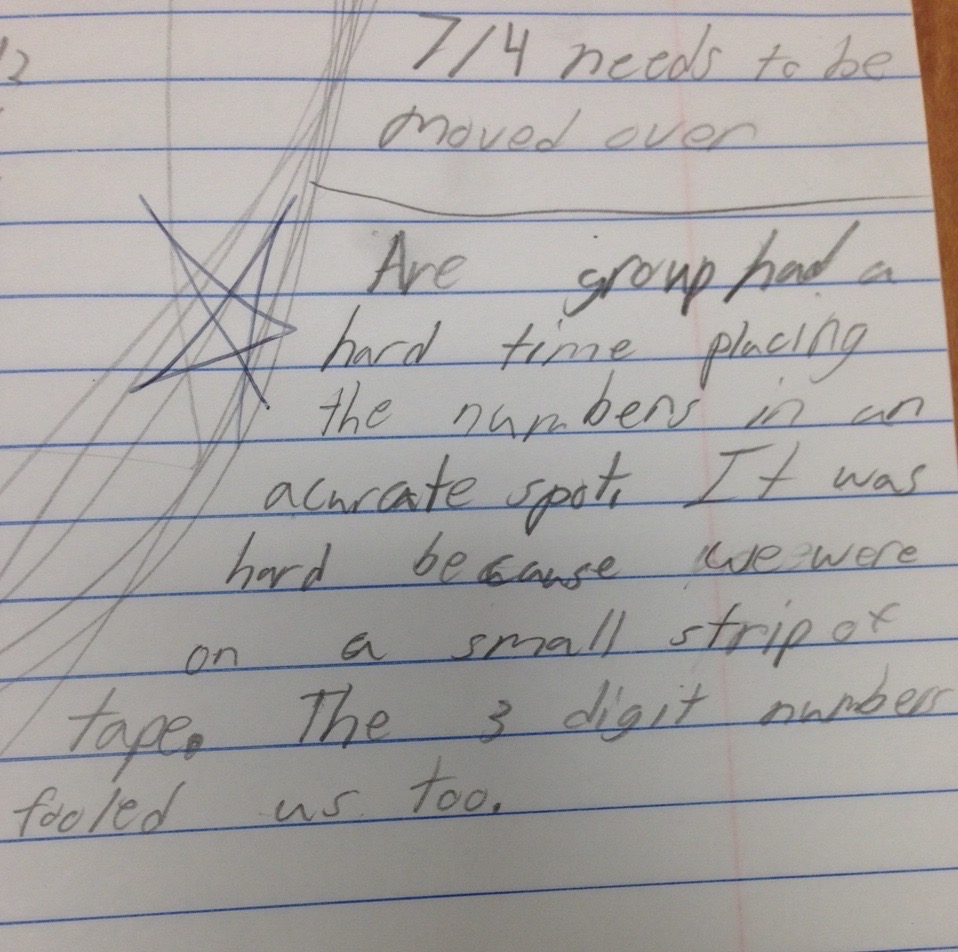 7/4 needs to be
moved over
Are group had a
hard time placing
the numbers in an
acurate spot. It was
hard because we were
on a small strip of
tape. The 3 digit numbers
fooled us too.